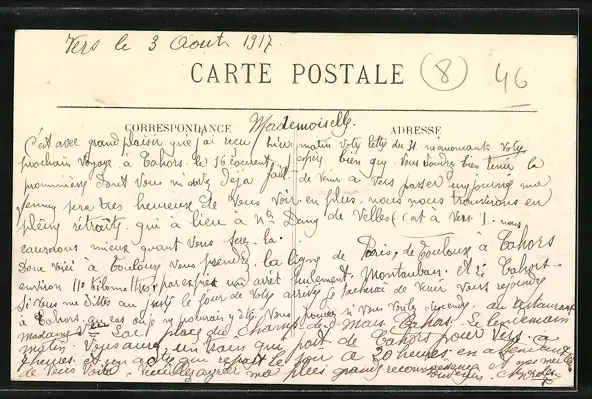 Vers le 3 Aout 1917.
CARTE POSTALE
8
46
CORRESPONDANCE Mademoiselle. ADRESSE
C'est avec grand plaisir que j'ai reçu hier matin votre lettre du 31 m'anoncant votre
prochain voyage à Cahors. le 16 courent, espère bien que vous voudrez bien tenir la
prommesse dont vous m'avez déja fait de venir à Vers passer une journée ma
femme sera très heureuse de vous voir. en plus nous nous trouverons en
pleine retraite qui à lieu à Nte Dame de Velles (cet à Vers). nous
causerons mieux quant vous serez la.
Donc voici à Toulouse vous prendrez la ligne de Paris, de Toulouse à Cahors
environ 110 kilomètres un arrêt seulement, Montauban. Et Cahors.
Si vous me dittes au juste le jour de votre arrivée je tacherai de venir vous rejoindre
à Cahors. au cas ou je ne pourrais y être. Vous pouvez si vous voulez descendre au restaurant
madame Vve Lac place du Champ de Mars. Cahors. Le lendemain
matin. vous aurez un train qui part de Cahors pour Vers à
heures et un autre qui repart le soir à 20 heures. en attendant
de vous voir. Veuillez agréer ma plus grande reconnaissance et mes meilleurs